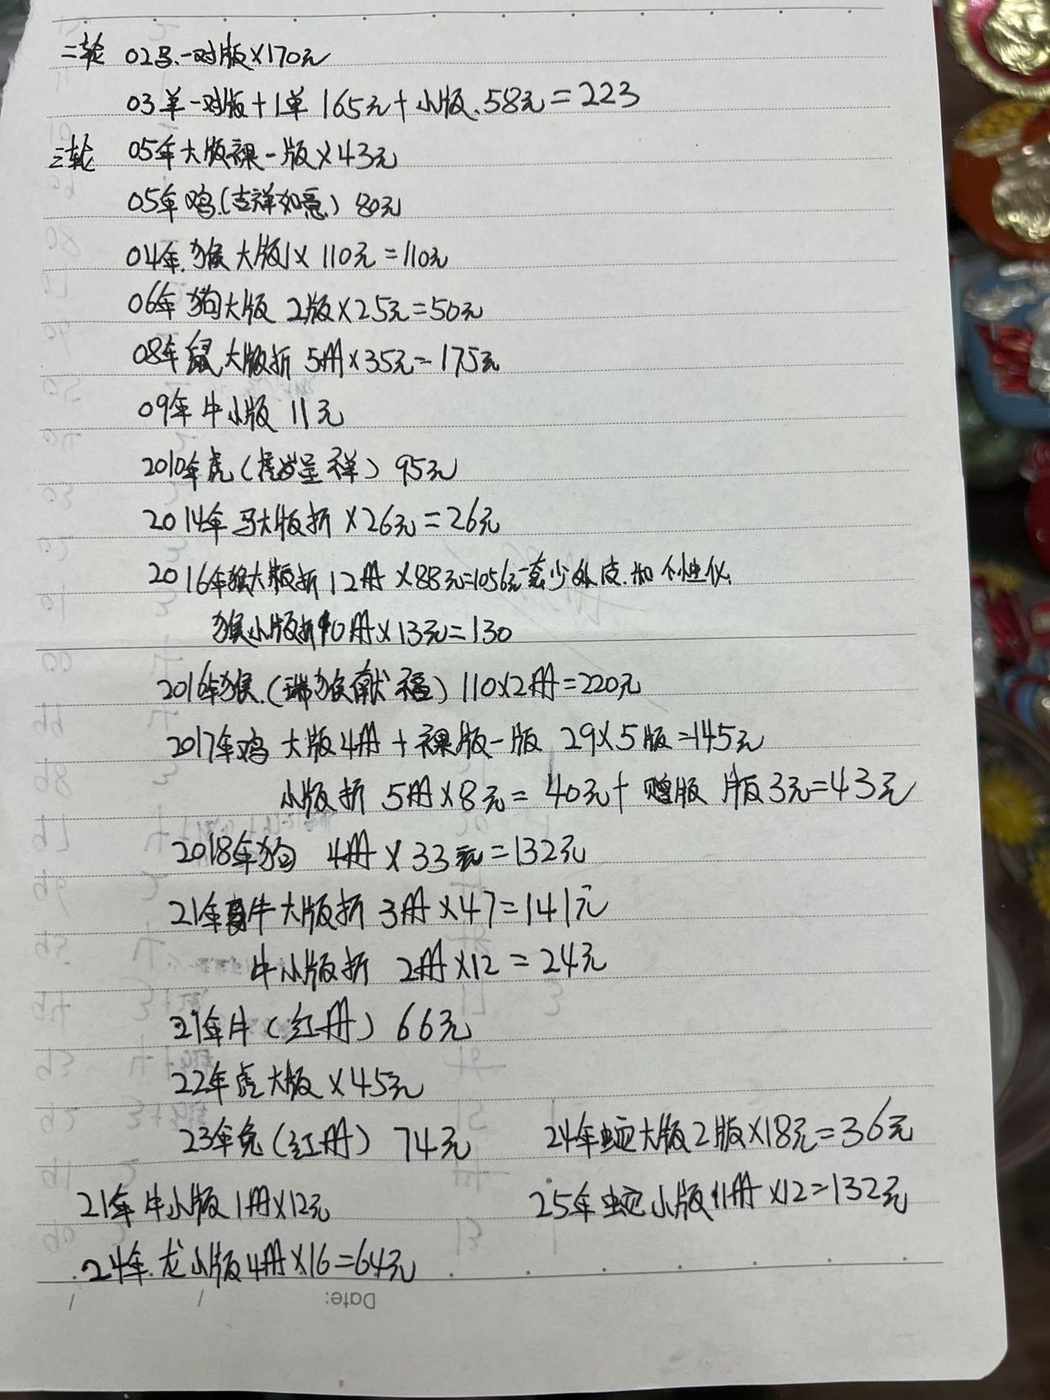 二轮 02马.一对版×170元
03羊一对版+1单 165元+小版.58元=223
三轮 05年大版裸一版×43元
05年鸡(吉祥如意) 80元
04年.猴大版1×110元=110元
06年狗大版 2版×25元=50元
08年鼠大版折 5册×35元=175元
09年牛小版 11元
2010年虎(虎岁呈祥) 95元
2014年马大版折×26元=26元
2016年猴大版折12册×88元=1056元 套少外皮.加个性化
猴小版折10册×13元=130
2016年猴.(瑞猴献福) 110×2册=220元
2017年鸡 大版4册+裸版一版 29×5版=145元
小版折 5册×8元=40元+赠版 版3元=43元
2018年狗 4册×33元=132元
21年牛大版折 3册×47=141元
牛小版折 2册×12=24元
21年牛(红册) 66元
22年虎大版×45元
23年兔(红册) 74元 24年蛇大版2版×18元=36元
21年牛小版1册×12元 25年蛇小版11册×12=132元
24年.龙小版4册×16=64元
Date: